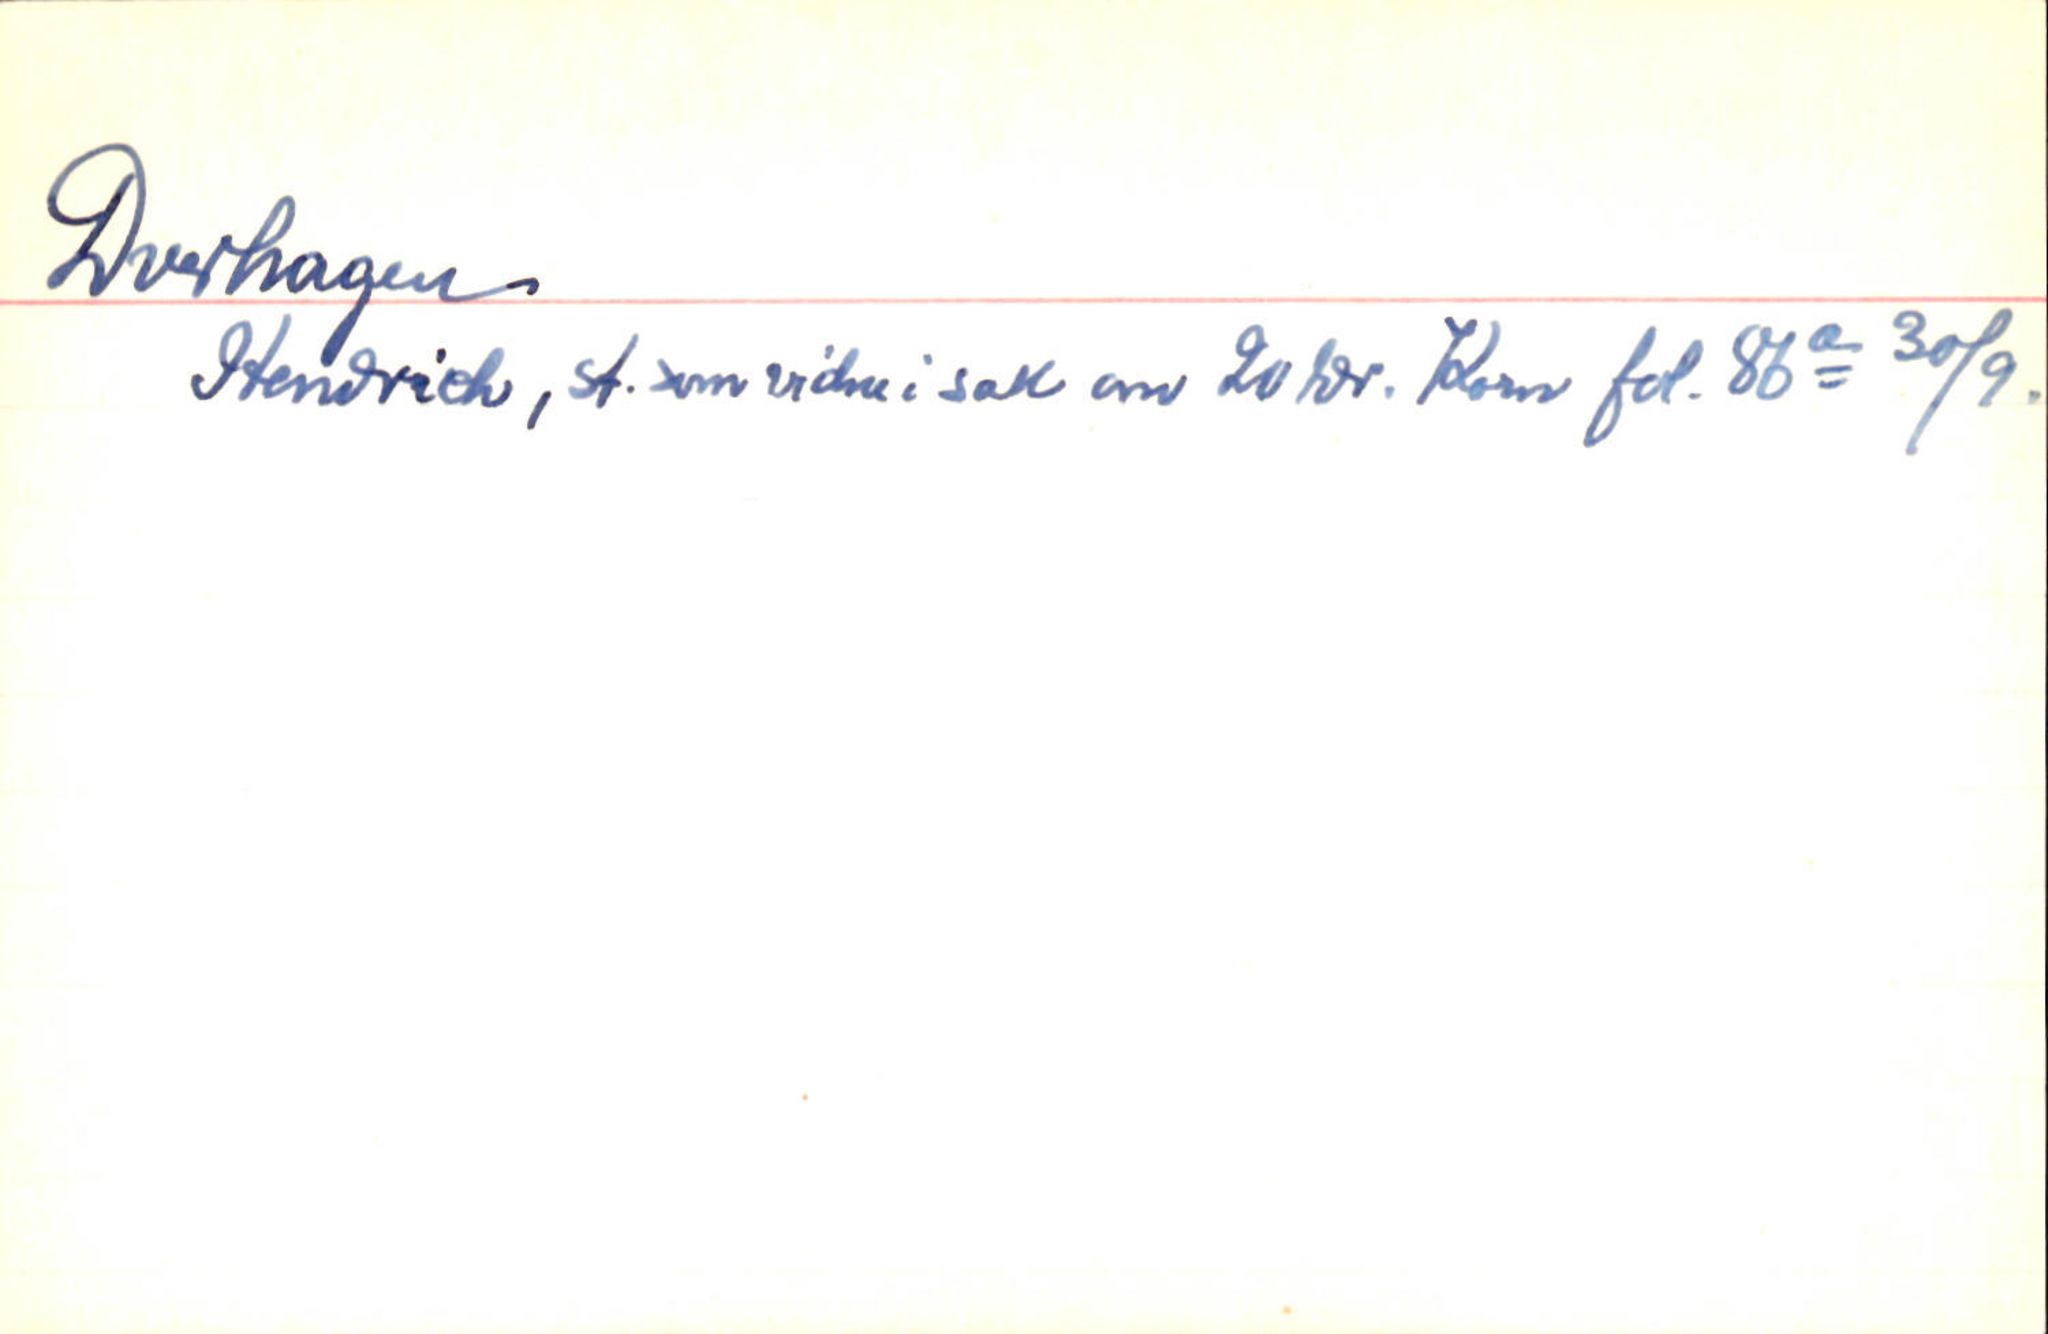 Dverhagen
Hendrich, st. som vidne i sak om 20 tdr. Korn fol. 86a 30/9.